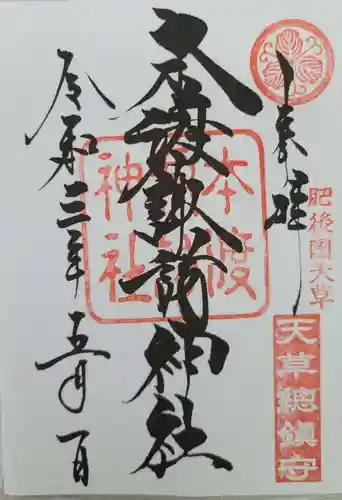 奉拝
肥後国天草
天草総鎮守
本渡諏訪神社
本渡
諏訪
神社
令和三年五月一日